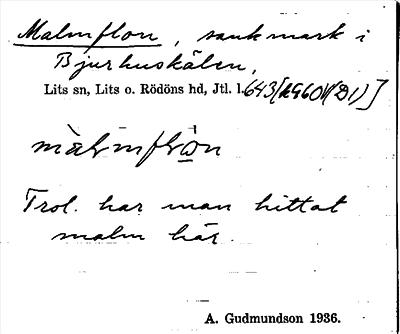 Malmflon, sankmark i
Bjurhuskälen,
Lits sn, Lits o. Rödöns hd, Jtl. l. 643
màlmflòn
Trol. har man hittat
malm här.
A. Gudmundson 1936.